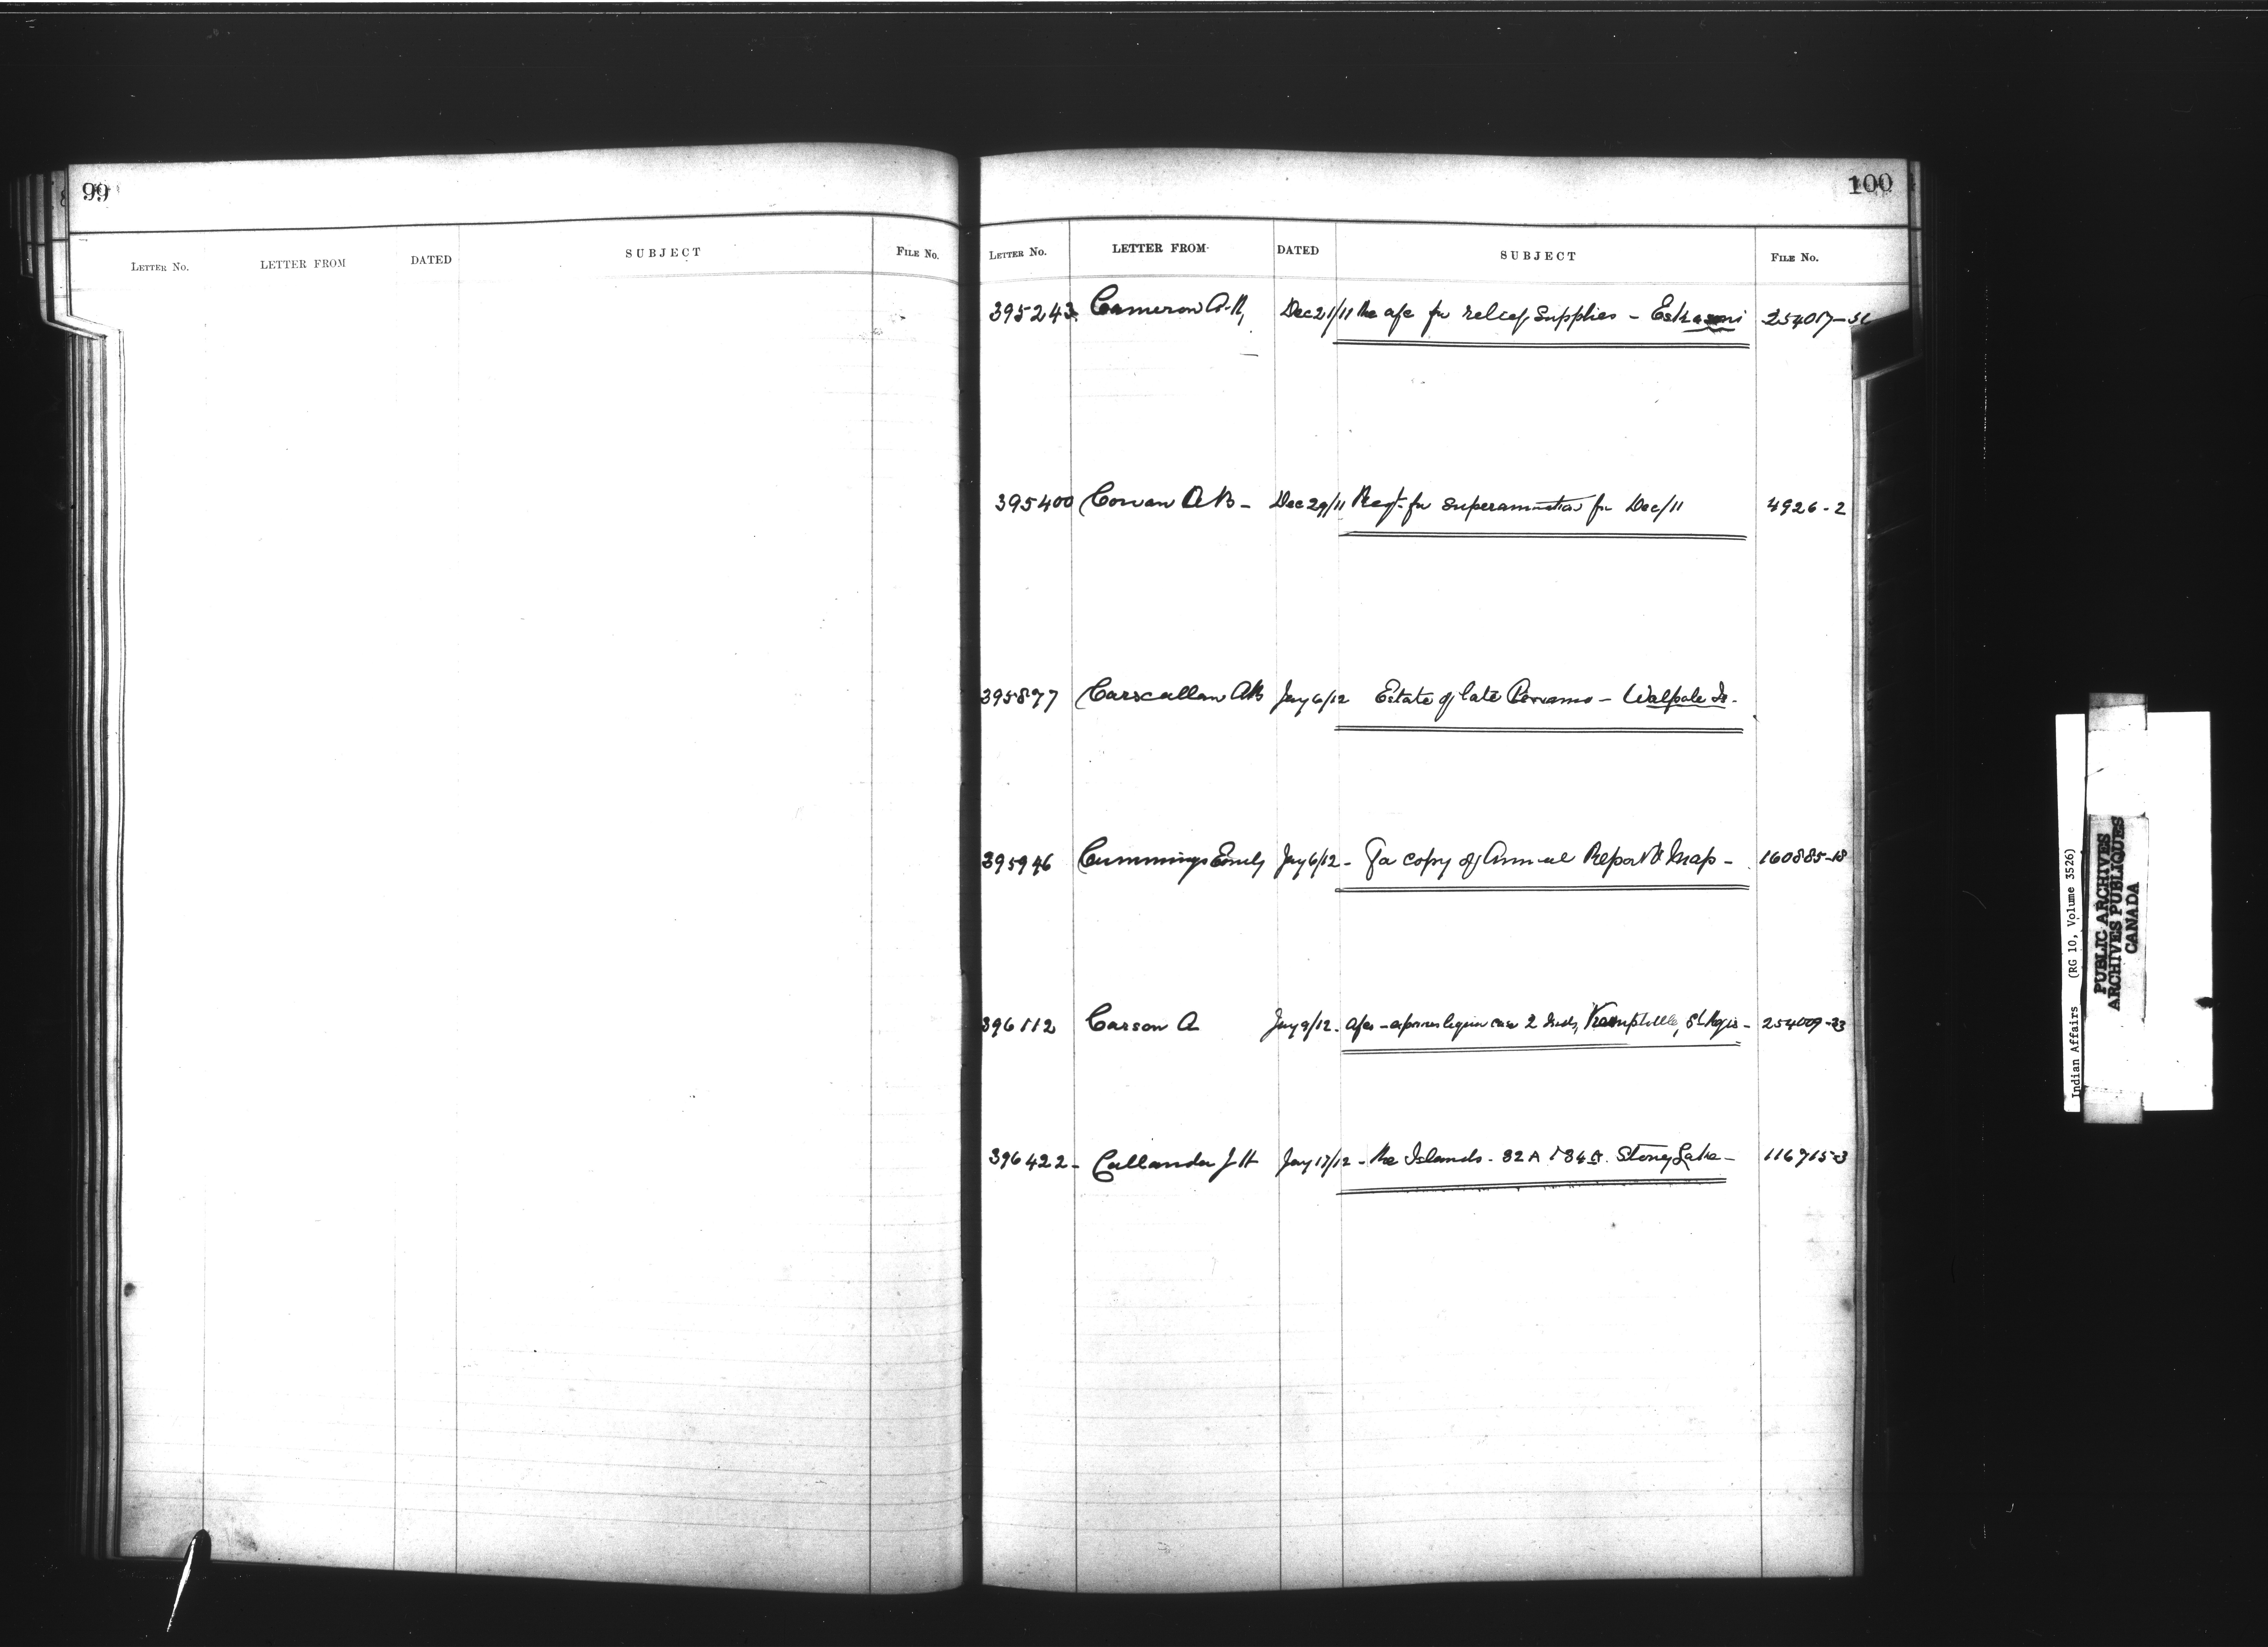 99
LETTER No. LETTER FROM DATED SUBJECT FILE No.
100
LETTER No. LETTER FROM DATED SUBJECT FILE No.
395243 Cameron A.R, Dec 21/11 Re a/c for relief Supplies - Eskasoni 254017-
395400 Cowan A B - Dec 29/11 Reqt. for Superannuation for Dec/11 4926-2
395877 Carscallan AB Jany 6/12 Estate of late - Walpole Is.
395946 Cummings Emily Jany 6/12 - For copy of Annual Report & Map - 160885-18
396112 Carson A Jany 9/12 - a/cs - liquor case 2 Inds, Kemptville, St Regis - 254009-23
396422 - Callander J H Jany 17/12 - Re Islands - 32A & 34A. Stoney Lake - 116715-3
Indian Affairs (RG 10, Volume 3526)
PUBLIC ARCHIVES
ARCHIVES PUBLIQUES
CANADA